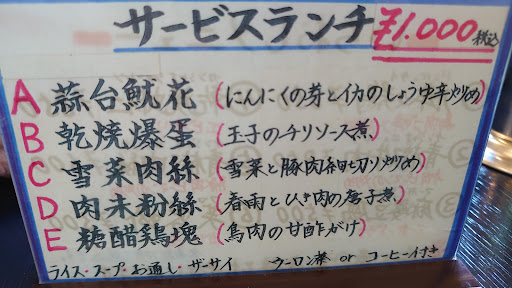 サービスランチ ¥1.000 税込
A 蒜台魷花 (にんにくの芽とイカのしょうゆ辛炒め)
B 乾焼爆蛋 (玉子のチリソース煮)
C 雪菜肉絲 (雪菜と豚肉細切り炒め)
D 肉末粉絲 (春雨とひき肉の唐子煮)
E 糖醋鶏塊 (鳥肉の甘酢がけ)
ライス・スープ・お通し・ザーサイ ウーロン茶 or コーヒー付き